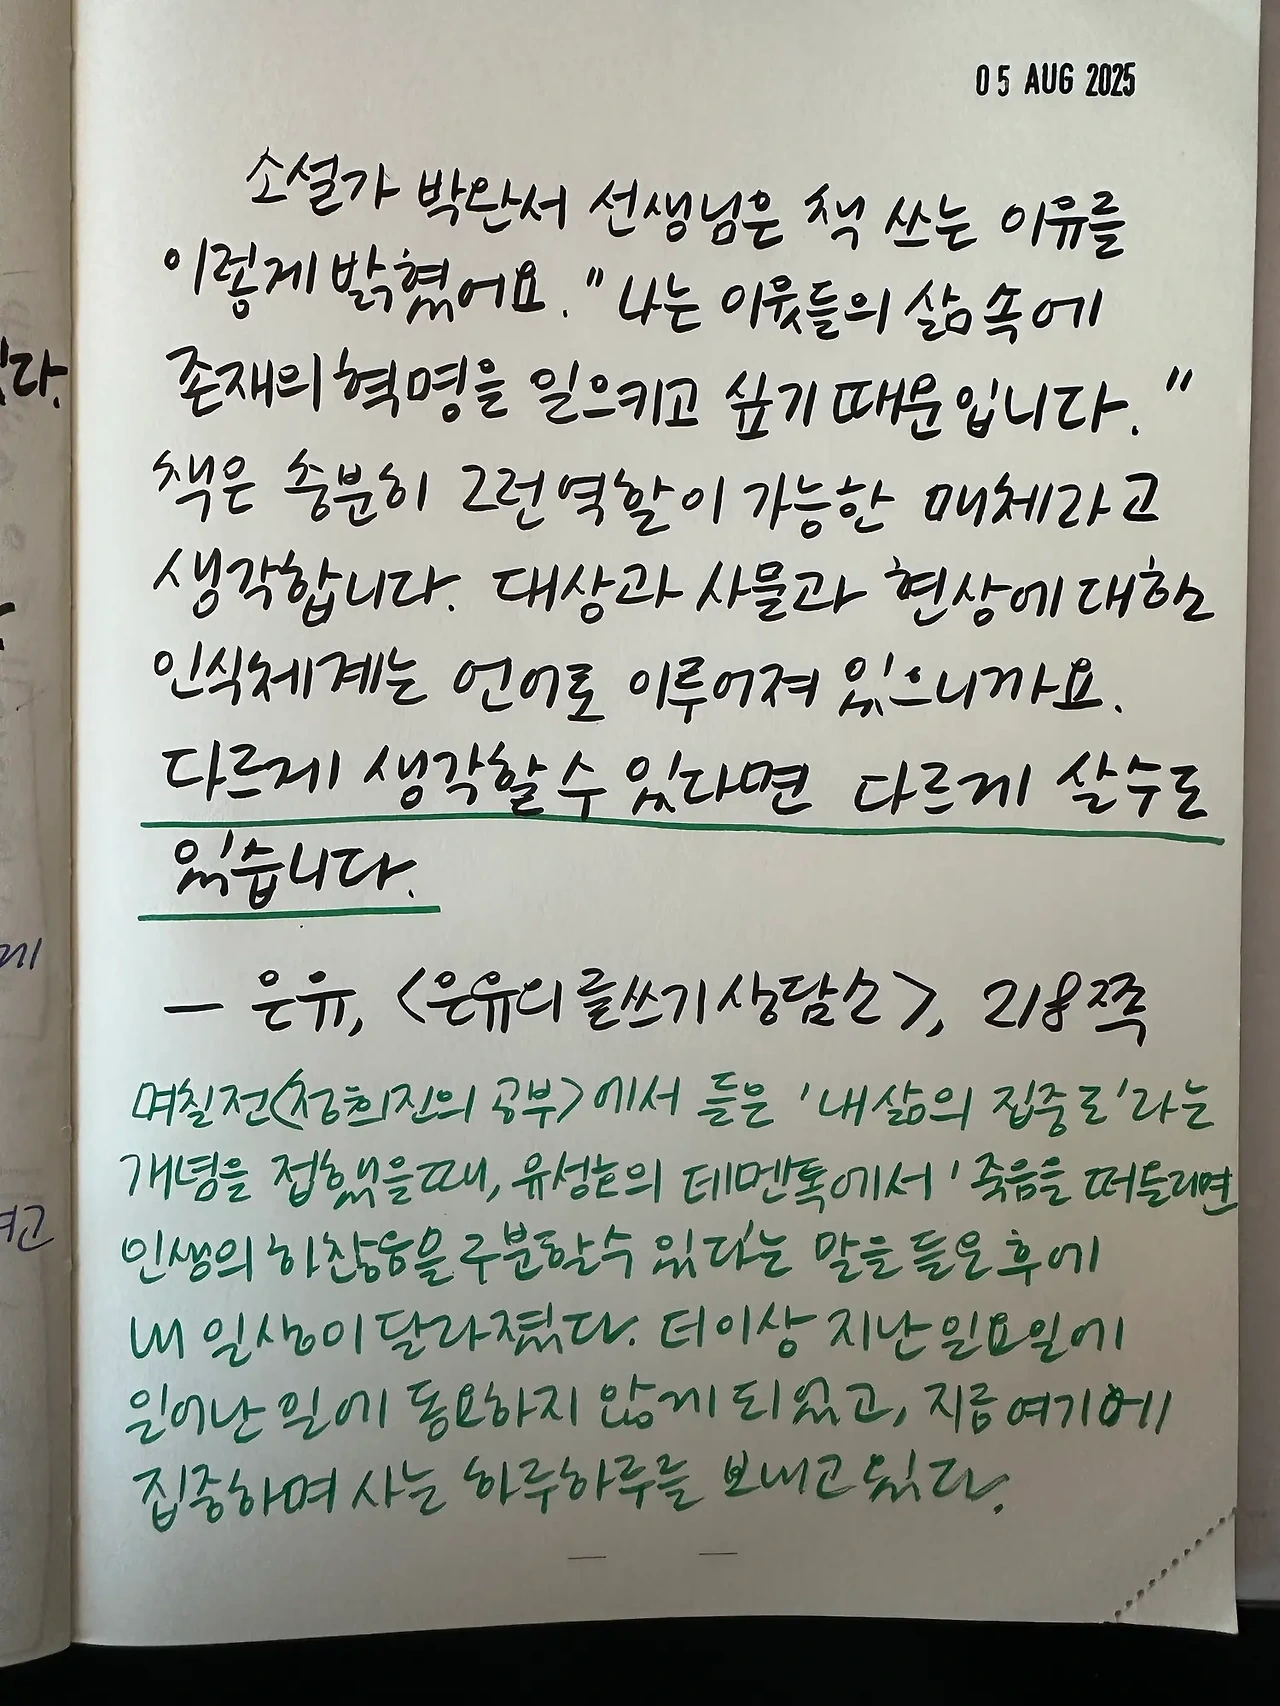 05 AUG 2025
소설가 박완서 선생님은 책 쓰는 이유를
이렇게 밝혔어요. "나는 이웃들의 삶 속에
존재의 혁명을 일으키고 싶기 때문입니다."
책은 충분히 그런 역할이 가능한 매체라고
생각합니다. 대상과 사물과 현상에 대한
인식체계는 언어로 이루어져 있으니까요.
다르게 생각할 수 있다면 다르게 살 수도
있습니다.
— 은유, <은유의 글쓰기 상담소>, 218쪽
며칠전 <정희진의 공부>에서 들은 '내 삶의 집중도'라는
개념을 접했을 때, 유성호의 데멘톡에서 '죽음을 떠올리면
인생의 하찮음을 구분할 수 있다'는 말을 들은 후에
내 일상이 달라졌다. 더이상 지난 일요일에
일어난 일에 동요하지 않게 되었고, 지금 여기에
집중하며 사는 하루하루를 보내고 있다.
다.
게